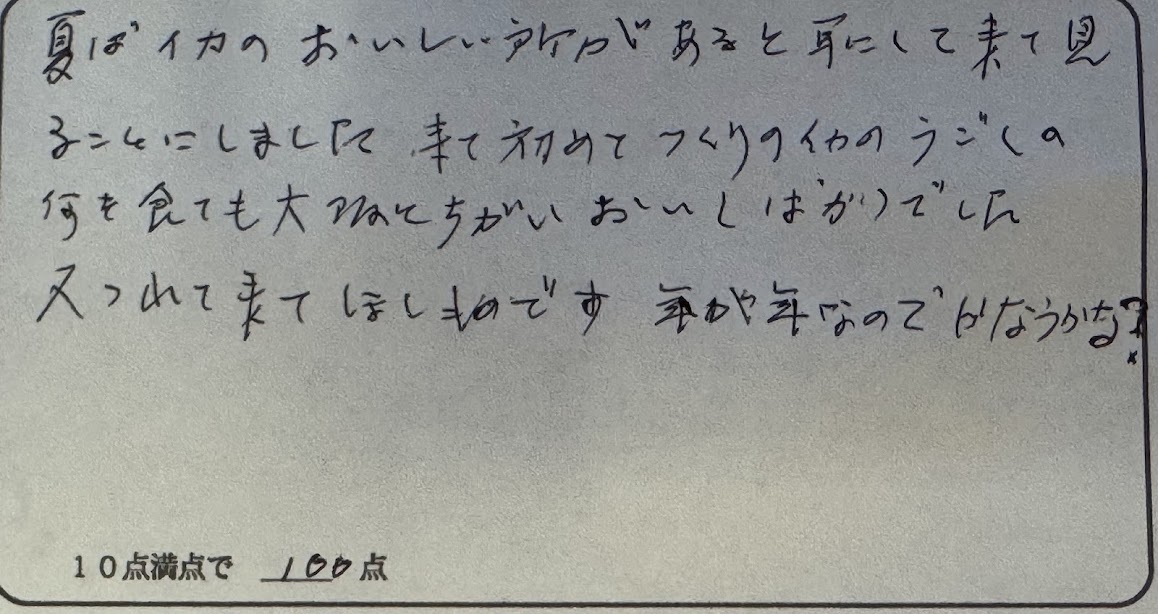 夏ばイカのおいしい所があると耳にして来て見
ることにしました 来て初めてつくりのイカのうごくの
何を食ても大阪とちがいおいしばかりでした
又つれて来てほしものです 年が年なのでかなうかな?
10点満点で 100点